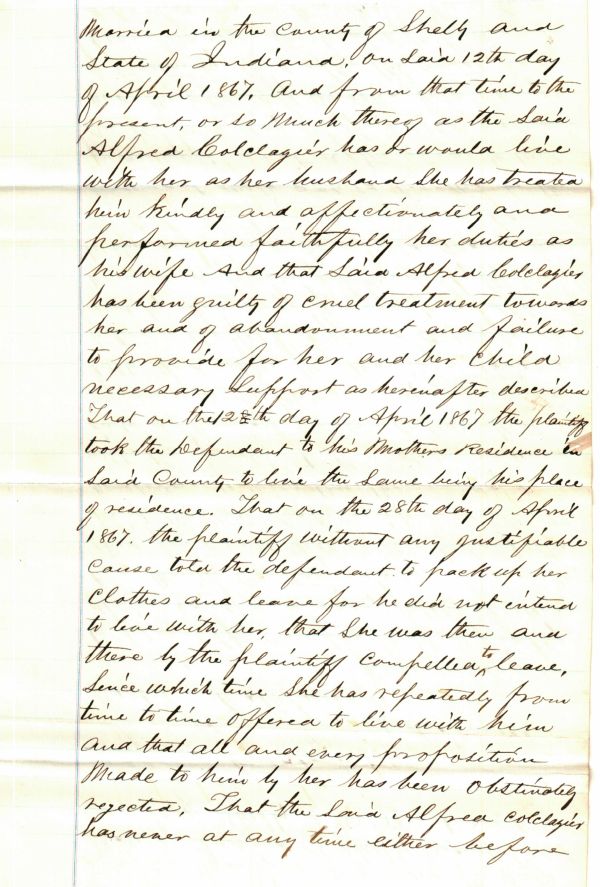 Married in the County of Shelby and
State of Indiana, on Said 12th day
of April 1867. And from that time to the
present, or so Much thereof as the Said
Alfred Colclagier has or would live
with her as her husband She has treated
him kindly and affectionately and
performed faithfully her duties as
his wife And that Said Alfred Colclagier
has been guilty of cruel treatment towards
her and of abandonment and failure
to provide for her and her child
necessary Support as hereinafter described
That on the 12th day of April 1867 the plaintiff
took the Defendant to his Mothers Residence in
Said County to live the Same being his place
of residence. That on the 28th day of April
1867. the plaintiff without any justifiable
Cause told the defendant to pack up her
Clothes and leave for he did not intend
to live with her, that She was then and
there by the plaintiff Compelled to leave.
Since which time She has repeatedly from
time to time offered to live with him
and that all and every proposition
Made to him by her has been Obstinately
rejected. That the Said Alfred Colclagier
has never at any time either before